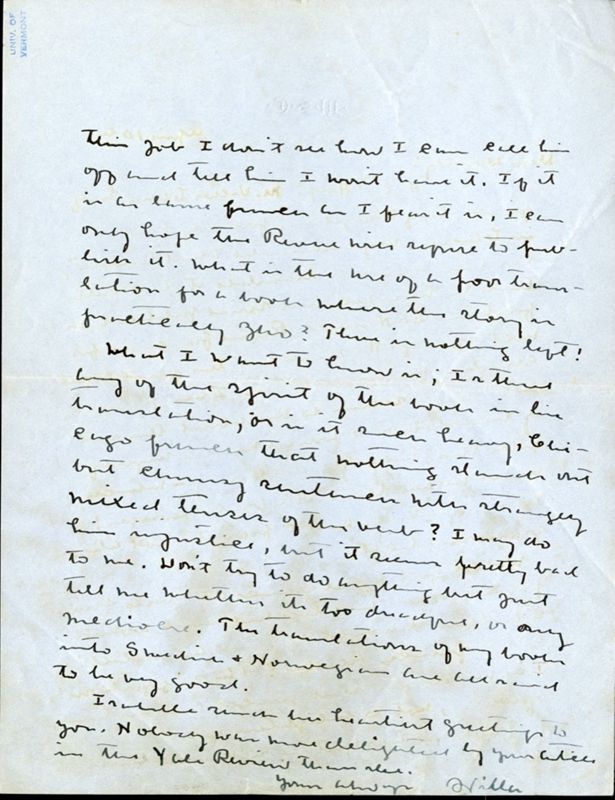 UNIV. OF
VERMONT
this job I don't see how I can call him
off and tell him I won't have it. If it
is as lame french as I fear it is, I can
only hope the Revue will refuse to pub-
lish it. What is the use of a poor trans-
lation for a book where the story is
practically zero? There is nothing left!
What I want to know is; Is there
any of the spirit of the book in his
translation, or is it such heavy, Chi-
cago french that nothing stands out
but clumsy sentences with strangely
mixed tenses of the verb? I may do
him injustice, but it seems pretty bad
to me. Don't try to do anything but just
tell me whether its too dreadful, or only
mediocre. The translations of my books
into Swedish & Norwegian are all said
to be very good.
Isabelle sends her heartiest greetings to
you. Nobody was more delighted by your
in the Yale Review than she.
Yours always Willa